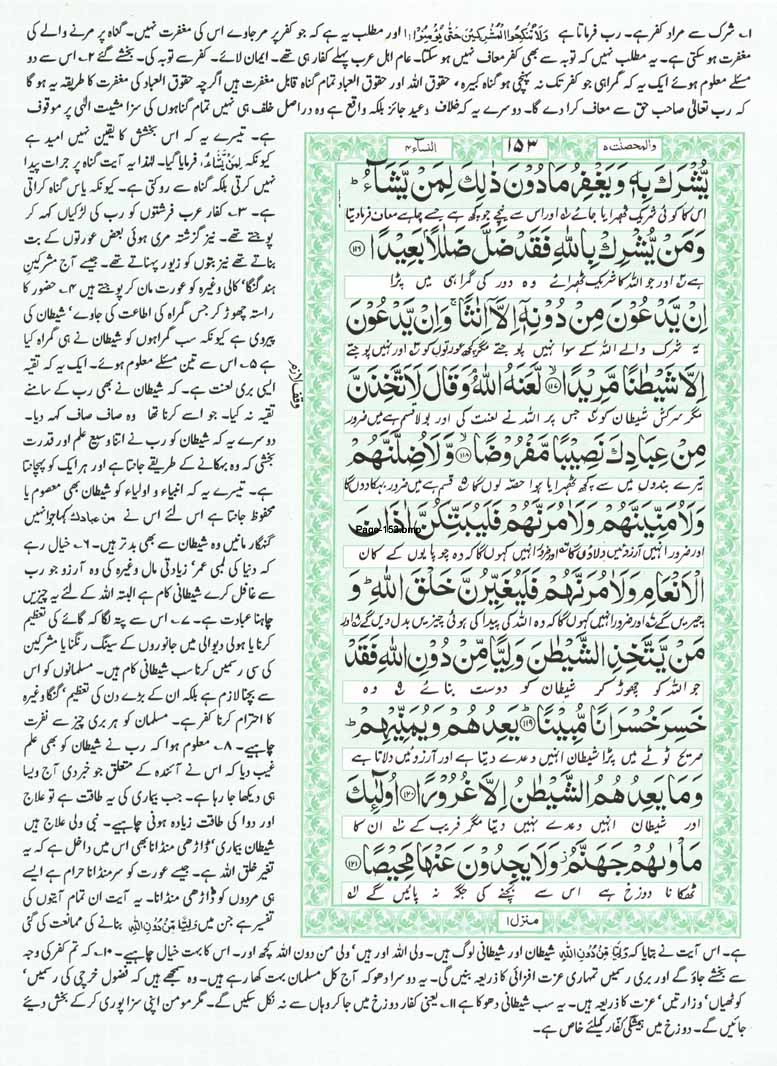 ۱؎ شرک سے مراد کفر ہے۔ رب فرماتا ہے وَلَا تُنْکِحُوا الْمُشْرِکِیْنَ حَتّٰی یُؤْمِنُوْا ؕ اور مطلب یہ ہے کہ جو کفر پر مر جاوے اس کی مغفرت نہیں۔ گناہ پر مرنے والے کی
مغفرت ہو سکتی ہے۔ یہ مطلب نہیں کہ توبہ سے بھی کفر معاف نہیں ہو سکتا۔ عام اہل عرب پہلے کفار ہی تھے۔ ایمان لائے۔ کفر سے توبہ کی۔ بخشے گئے ۲؎ اس سے دو
مسئلے معلوم ہوئے ایک یہ کہ گمراہی جو کفر تک نہ پہنچی ہو گناہ کبیرہ، حقوق اللہ اور حقوق العباد تمام گناہ قابل مغفرت ہیں اگرچہ حقوق العباد کی مغفرت کا طریقہ یہ ہو گا
کہ رب تعالٰی صاحب حق سے معاف کرا دے گا۔ دوسرے یہ کہ خلاف وعید جائز بلکہ واقع ہے وہ دراصل خلف ہی نہیں تمام گناہوں کی سزا مشیت الٰہی پر موقوف
ہے۔ تیسرے یہ کہ اس بخشش کا یقین نہیں امید ہے
کیونکہ لِمَنْ یَّشَآءُ، فرمایا گیا۔ لہٰذا یہ آیت گناہ پر جرات پیدا
نہیں کرتی بلکہ گناہ سے روکتی ہے۔ کیونکہ یاس گناہ کراتی
ہے۔ ۳؎ کفار عرب فرشتوں کو رب کی لڑکیاں کہہ کر
پوجتے تھے۔ نیز گزشتہ مری ہوئی بعض عورتوں کے بت
بناتے تھے نیز بتوں کو زیور پہناتے تھے۔ جیسے آج مشرکین
ہند گنگا، کالی وغیرہ کو عورت مان کر پوجتے ہیں ۴؎ حضور کا
راستہ چھوڑ کر جس گمراہ کی اطاعت کی جاوے، شیطان کی
پیروی ہے کیونکہ سب گمراہوں کو شیطان نے ہی گمراہ کیا
ہے ۵؎ اس سے تین مسئلے معلوم ہوئے۔ ایک یہ کہ تقیہ
ایسی بری لعنت ہے۔ کہ شیطان نے بھی رب کے سامنے
تقیہ نہ کیا۔ جو اسے کرنا تھا وہ صاف صاف کہہ دیا۔
دوسرے یہ کہ شیطان کو رب نے اتنا وسیع علم اور قدرت
بخشی کہ وہ بہکانے کے طریقے جانتا ہے اور ہر ایک کو پہچانتا
ہے۔ تیسرے یہ کہ انبیاء و اولیاء کو شیطان بھی معصوم یا
محفوظ جانتا ہے اس لئے اس نے من عبادک کہا جو انہیں
گنہگار مانیں وہ شیطان سے بھی بدتر ہیں۔ ۶؎ خیال رہے
کہ دنیا کی لمبی عمر، زیادتی مال وغیرہ کی وہ آرزو جو رب
سے غافل کرے شیطانی کام ہے البتہ اللہ کے لئے یہ چیزیں
چاہنا عبادت ہے۔ ۷؎ اس سے پتہ لگا کہ گائے کی تعظیم
کرنا یا ہولی دیوالی میں جانوروں کے سینگ رنگنا یا مشرکین
کی سی رسمیں کرنا سب شیطانی کام ہیں۔ مسلمانوں کو اس
سے بچنا لازم ہے بلکہ ان کے بڑے دن کی تعظیم، گنگا وغیرہ
کا احترام کرنا کفر ہے۔ مسلمان کو ہر بری چیز سے نفرت
چاہیے۔ ۸؎ معلوم ہوا کہ رب نے شیطان کو بھی علم
غیب دیا کہ اس نے آئندہ کے متعلق جو خبر دی آج ویسا
ہی دیکھا جا رہا ہے۔ جب بیماری کی یہ طاقت ہے تو علاج
اور دوا کی طاقت زیادہ ہونی چاہیے۔ نبی ولی علاج ہیں
شیطان بیماری، ڈاڑھی منڈانا بھی اس میں داخل ہے کہ یہ
تغیر خلق اللہ ہے۔ جیسے عورت کو سر منڈانا حرام ہے ایسے
ہی مردوں کو ڈاڑھی منڈانا۔ یہ آیت ان تمام آیتوں کی
تفسیر ہے جن میں وَلِیًّا مِّنْ دُوْنِ اللّٰہِ بنانے کی ممانعت کی گئی
والمحصنت ۵
۱۵۳
النسآء ۴
یُّشْرَکَ بِہٖ وَیَغْفِرُ مَا دُوْنَ ذٰلِکَ لِمَنْ یَّشَآءُ ؕ
اس کا کوئی شریک ٹھہرایا جائے ۱؎ اور اس سے نیچے جو کچھ ہے جسے چاہے معاف فرما دیتا
وَمَنْ یُّشْرِکْ بِاللّٰہِ فَقَدْ ضَلَّ ضَلٰلًۢا بَعِیْدًا ﴿۱۱۶﴾
ہے ۲؎ اور جو اللہ کا شریک ٹھہرائے وہ دور کی گمراہی میں پڑا
اِنْ یَّدْعُوْنَ مِنْ دُوْنِہٖۤ اِلَّاۤ اِنٰثًا ۚ وَاِنْ یَّدْعُوْنَ
یہ شرک والے اللہ کے سوا نہیں پوجتے مگر کچھ عورتوں کو ۳؎ اور نہیں پوجتے
اِلَّا شَیْطٰنًا مَّرِیْدًا ﴿۱۱۷﴾ لَّعَنَہُ اللّٰہُ وَقَالَ لَاَتَّخِذَنَّ
مگر سرکش شیطان کو ۴؎ جس پر اللہ نے لعنت کی اور بولا قسم ہے میں ضرور
مِنْ عِبَادِکَ نَصِیْبًا مَّفْرُوْضًا ﴿۱۱۸﴾ وَّلَاُضِلَّنَّہُمْ
تیرے بندوں میں سے کچھ ٹھہرایا ہوا حصّہ لوں گا ۵؎ قسم ہے میں ضرور بہکا دوں گا
وَلَاُمَنِّیَنَّہُمْ وَلَاٰمُرَنَّہُمْ فَلَیُبَتِّکُنَّ اٰذَانَ
Page-153.bmp
اور ضرور انہیں آرزوئیں دلاؤں گا ۶؎ اور ضرور انہیں کہوں گا کہ وہ چوپایوں کے کان
الْاَنْعَامِ وَلَاٰمُرَنَّہُمْ فَلَیُغَیِّرُنَّ خَلْقَ اللّٰہِ ؕ وَ
چیریں گے ۷؎ اور ضرور انہیں کہوں گا کہ وہ اللہ کی پیدا کی ہوئی چیزیں بدل دیں گے ۸؎ اور
مَنْ یَّتَّخِذِ الشَّیْطٰنَ وَلِیًّا مِّنْ دُوْنِ اللّٰہِ فَقَدْ
جو اللہ کو چھوڑ کر شیطان کو دوست بنائے ۹؎ وہ
خَسِرَ خُسْرَانًا مُّبِیْنًا ﴿۱۱۹﴾ یَعِدُہُمْ وَیُمَنِّیْہِمْ ؕ
صریح ٹوٹے میں پڑا شیطان انہیں وعدے دیتا ہے اور آرزوئیں دلاتا ہے
وَمَا یَعِدُہُمُ الشَّیْطٰنُ اِلَّا غُرُوْرًا ﴿۱۲۰﴾ اُولٰٓئِکَ
اور شیطان انہیں وعدے نہیں دیتا مگر فریب کے ۱۰؎ ان کا
مَاْوٰىہُمْ جَہَنَّمُ ۫ وَلَا یَجِدُوْنَ عَنْہَا مَحِیْصًا ﴿۱۲۱﴾
ٹھکانا دوزخ ہے اس سے بچنے کی جگہ نہ پائیں گے ۱۱؎
منزل ۱
وقف لازم
ہے۔ اس آیت نے بتایا کہ وَلِیًّا مِّنْ دُوْنِ اللّٰہِ شیطان اور شیطانی لوگ ہیں۔ ولی اللہ اور ہیں، ولی من دون اللہ کچھ اور۔ اس کا بہت خیال چاہیے۔ ۱۰؎ کہ تم کفر کی وجہ
سے بخشے جاؤ گے اور بری رسمیں تمہاری عزت افزائی کا ذریعہ بنیں گی۔ یہ دوسرا دھوکہ آج کل مسلمان بہت کھا رہے ہیں۔ وہ سمجھے ہیں کہ فضول خرچی کی رسمیں،
کوٹھیاں، وزارتیں، عزت کا ذریعہ ہیں۔ یہ سب شیطانی دھوکا ہے ۱۱؎ یعنی کفار دوزخ میں جا کر وہاں سے نہ نکل سکیں گے۔ مگر مومن اپنی سزا پوری کر کے بخش دیئے
جائیں گے۔ دوزخ میں ہمیشگی کفار کیلئے خاص ہے۔